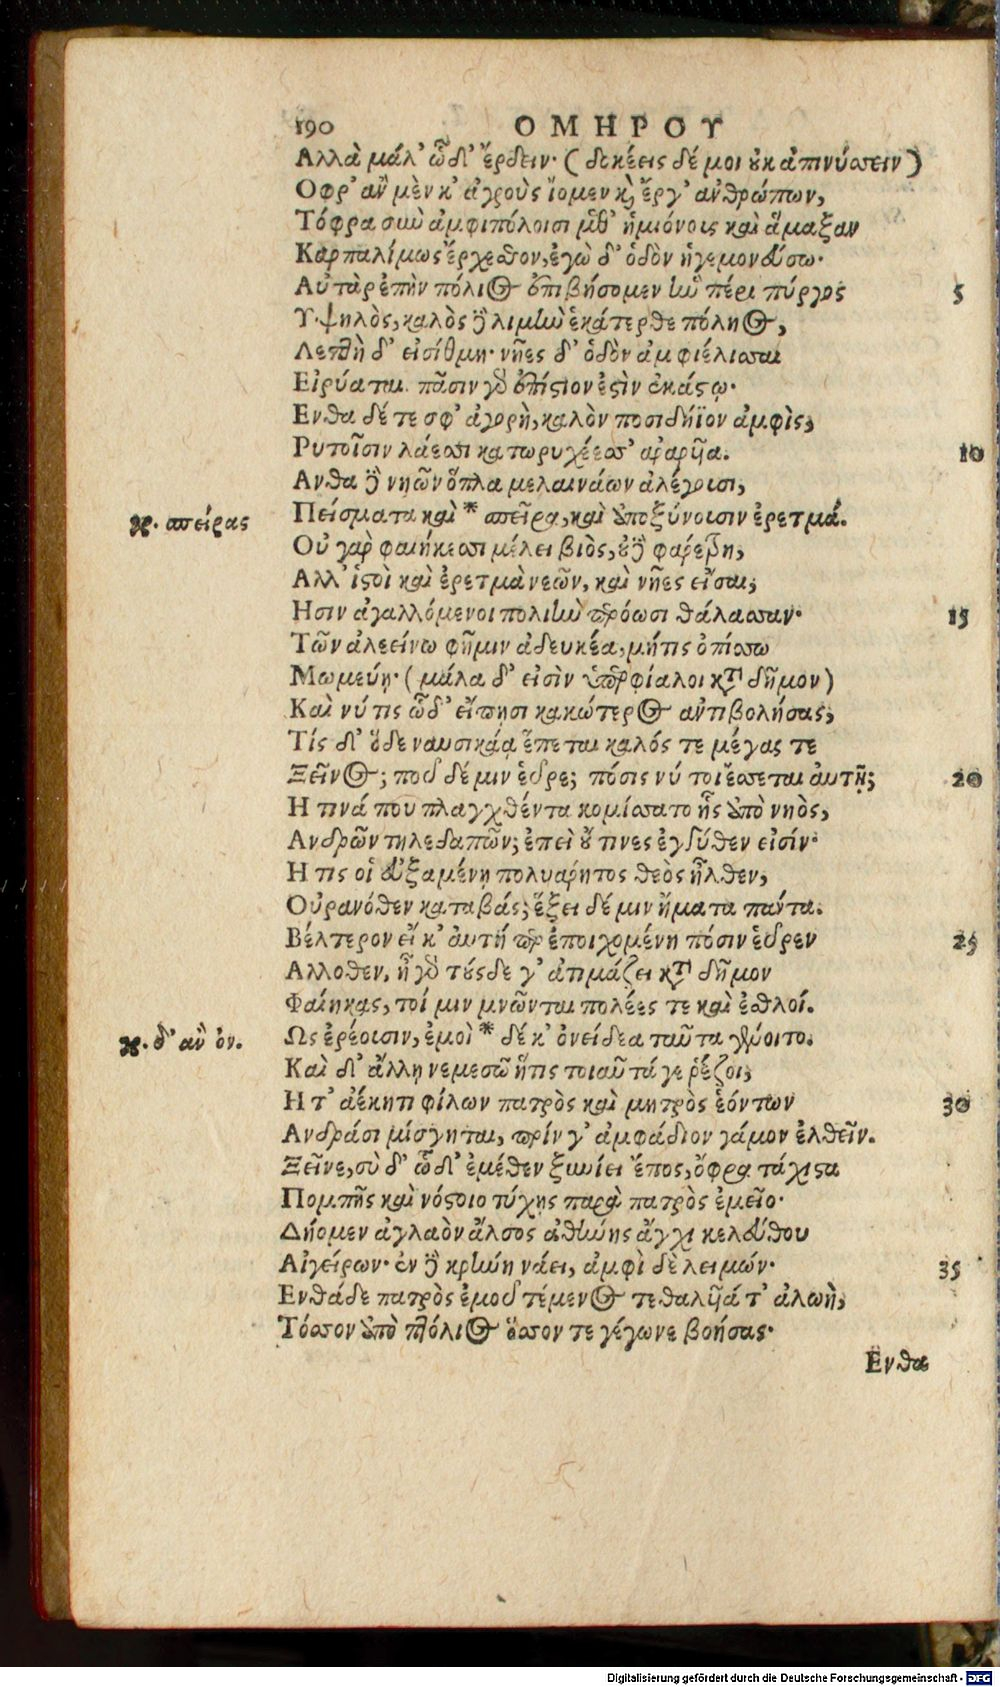 190 ΟΜΗΡΟΥ
Αλλὰ μάλ' ὧδ' ἔρδειν· (δοκέεις δέ μοι ȣκ ἀπινύσσειν)
Οφρ' ἂν μὲν κ' ἀγροὺς ἴομεν κ̀ ἔργ' ἀνθρώπων,
Τόφρα σιω ἀμφιπόλοισι μθ' ἡμιόνοις καὶ ἅμαξαν
Καρπαλίμως ἔρχεσθον, ἐγὼ δ' ὁδὸν ἡγεμονεύσω·
Αὐτὰρ ἐπὴν πόλιος ἐπιβήσομεν ἣν πέρι πύργος 5
Υψηλὸς, καλὸς δὲ λιμὴν ἑκάτερθε πόληος,
Λεπτὴ δ' εἰσίθμη· νῆες δ' ὁδὸν ἀμφιέλισσαι
Εἰρύαται. πᾶσιν γὰρ ἐπίστιον ἐστὶν ἑκάστῳ.
Ενθα δέ τε σφ' ἀγορὴ, καλὸν ποσιδήϊον ἀμφὶς,
Ρυτοῖσιν λάεσσι κατωρυχέεσσ' ἀραρῦα. 10
Ανθα δὲ νηῶν ὅπλα μελαινάων ἀλέγουσι,
γρ. σπείρας Πείσματα καὶ * σπεῖρα, καὶ ἀποξύνουσιν ἐρετμά.
Οὐ γὰρ φαιήκεσσι μέλει βιὸς, ȣδὲ φαρέτρη,
Αλλ' ἱστοὶ καὶ ἐρετμὰ νεῶν, καὶ νῆες εἶσαι,
Ησιν ἀγαλλόμενοι πολιὴν περόωσι θάλασσαν· 15
Τῶν ἀλεείνω φῆμιν ἀδευκέα, μήτις ὀπίσσω
Μωμεύη· (μάλα δ' εἰσὶν ὑπερφίαλοι κατὰ δῆμον)
Καὶ νύ τις ὧδ' εἴπησι κακώτερος ἀντιβολήσας,
Τίς δ' ὅδε ναυσικάᾳ ἕπεται καλός τε μέγας τε
Ξεῖνος; ποῦ δέ μιν εὗρε; πόσις νύ τοι ἔσσεται ἀυτῇ; 20
Η τινά που πλαγχθέντα κομίσσατο ἧς ἀπὸ νηὸς,
Ανδρῶν τηλεδαπῶν; ἐπεὶ ȣ̓́ τινες ἐγγύθεν εἰσίν·
Η τις οἱ εὐξαμένῃ πολυάρητος θεὸς ἦλθεν,
Οὐρανόθεν καταβάς; ἕξει δέ μιν ἤματα πάντα.
Βέλτερον εἴ κ' ἀυτή περ ἐποιχομένη πόσιν εὗρεν 25
Αλλοθεν. ἦ γὰρ τȣ́ς δε γ' ἀτιμάζει κατὰ δῆμον
Φαίηκας, τοί μιν μνῶνται πολέες τε καὶ ἐσθλοί.
γρ. δ' ἂν ὀν. Ως ἐρέουσιν, ἐμοὶ * δέ κ' ὀνείδεα ταῦτα γένοιτο.
Καὶ δ' ἄλλῃ νεμεσῶ ἥτις τοιαῦτά γε ῥέζοι,
Η τ' ἀέκητι φίλων πατρὸς καὶ μητρὸς ἐόντων 30
Ανδράσι μίσγηται, πρίν γ' ἀμφάδιον γάμον ἐλθεῖν.
Ξεῖνε, σὺ δ' ὧδ' ἐμέθεν ξυνίει ἔπος, ὄφρα τάχιστα
Πομπῆς καὶ νόστοιο τύχῃς παρὰ πατρὸς ἐμεῖο·
Δήομεν ἀγλαὸν ἄλσος ἀθήνης ἄγχι κελεύθου
Αἰγείρων· ἐν δὲ κρήνη νάει, ἀμφὶ δὲ λειμών· 35
Ενθάδε πατρὸς ἐμοῦ τέμενος τεθαλῦά τ' ἀλωὴ,
Τόσσον ἀπὸ πτόλιος ὅσσον τε γέγωνε βοήσας·
Ενθα
Digitalisierung gefördert durch die Deutsche Forschungsgemeinschaft - DFG